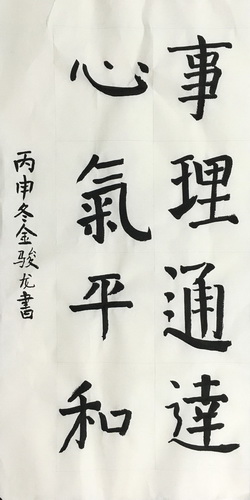 事理通達
心氣平和
丙申冬金骏龙書